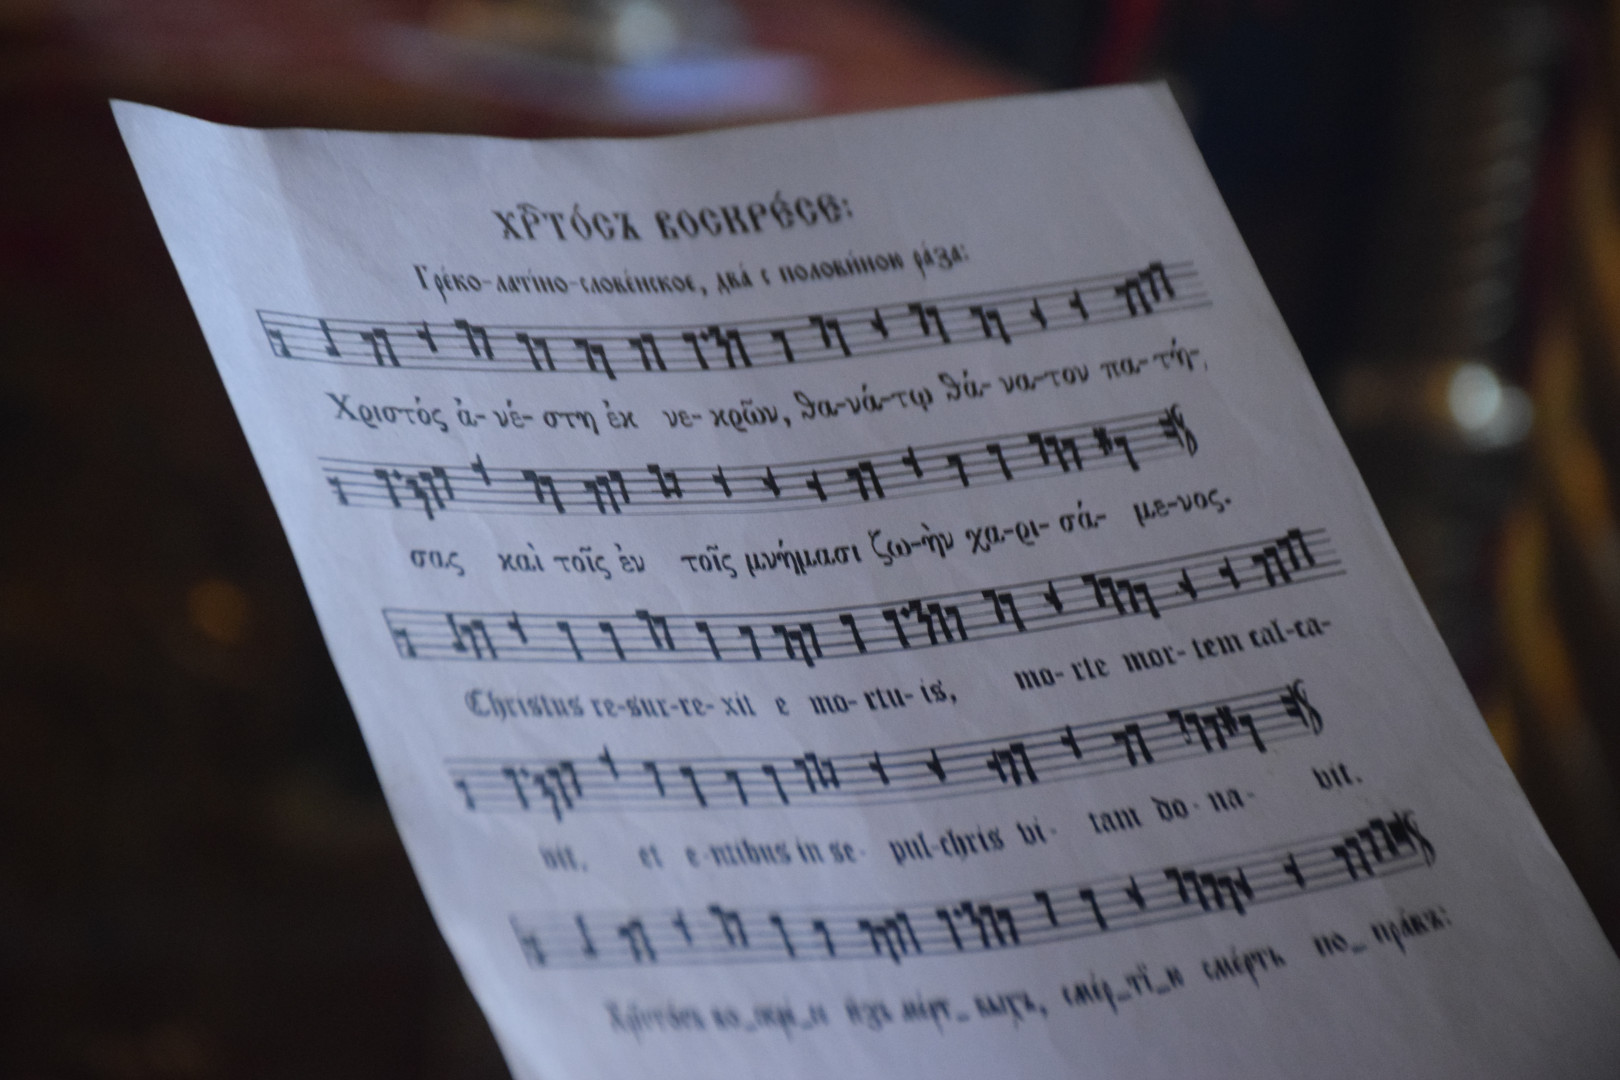 Хрⷭ҇то́съ воскре́се:
Гре́ко-лати́но-слове́нское, два́ с полови́ною ра́за:
Χριστός ἀ- νέ- στη ἐκ νε- κρῶν, θα-νά-τῳ θά- να-τον πα- τή-,
σας καὶ τοῖς ἐν τοῖς μνήμασι ζω-ὴν χα-ρι- σά- με-νος.
Christus re-sur-re- xit e mo- rtu- is, mo- rte mor- tem cal-ca-
vit. et e-ntibus in se- pul-chris vi- tam do- na- vit.
Хрⷭ҇то́съ во_скре́_се и҆зъ ме́рт_выхъ, сме́р_тї_ю сме́рть по_пра́въ: